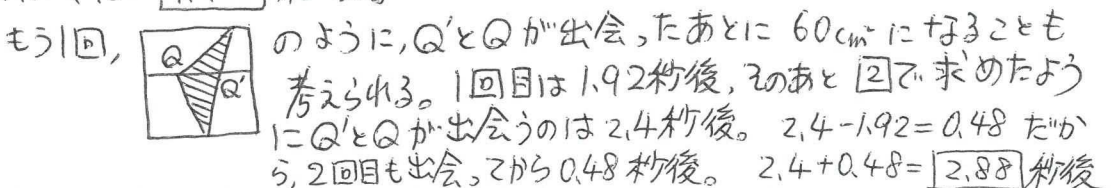 もう1回, Q Q' のように, Q'とQが出会ったあとに 60cm²になることも
考えられる。1回目は1.92秒後, そのあと 2で求めたよう
にQ'とQが出会うのは2.4秒後。 2.4-1.92=0.48 だか
ら, 2回目も出会ってから0.48秒後。 2.4+0.48=2.88秒後